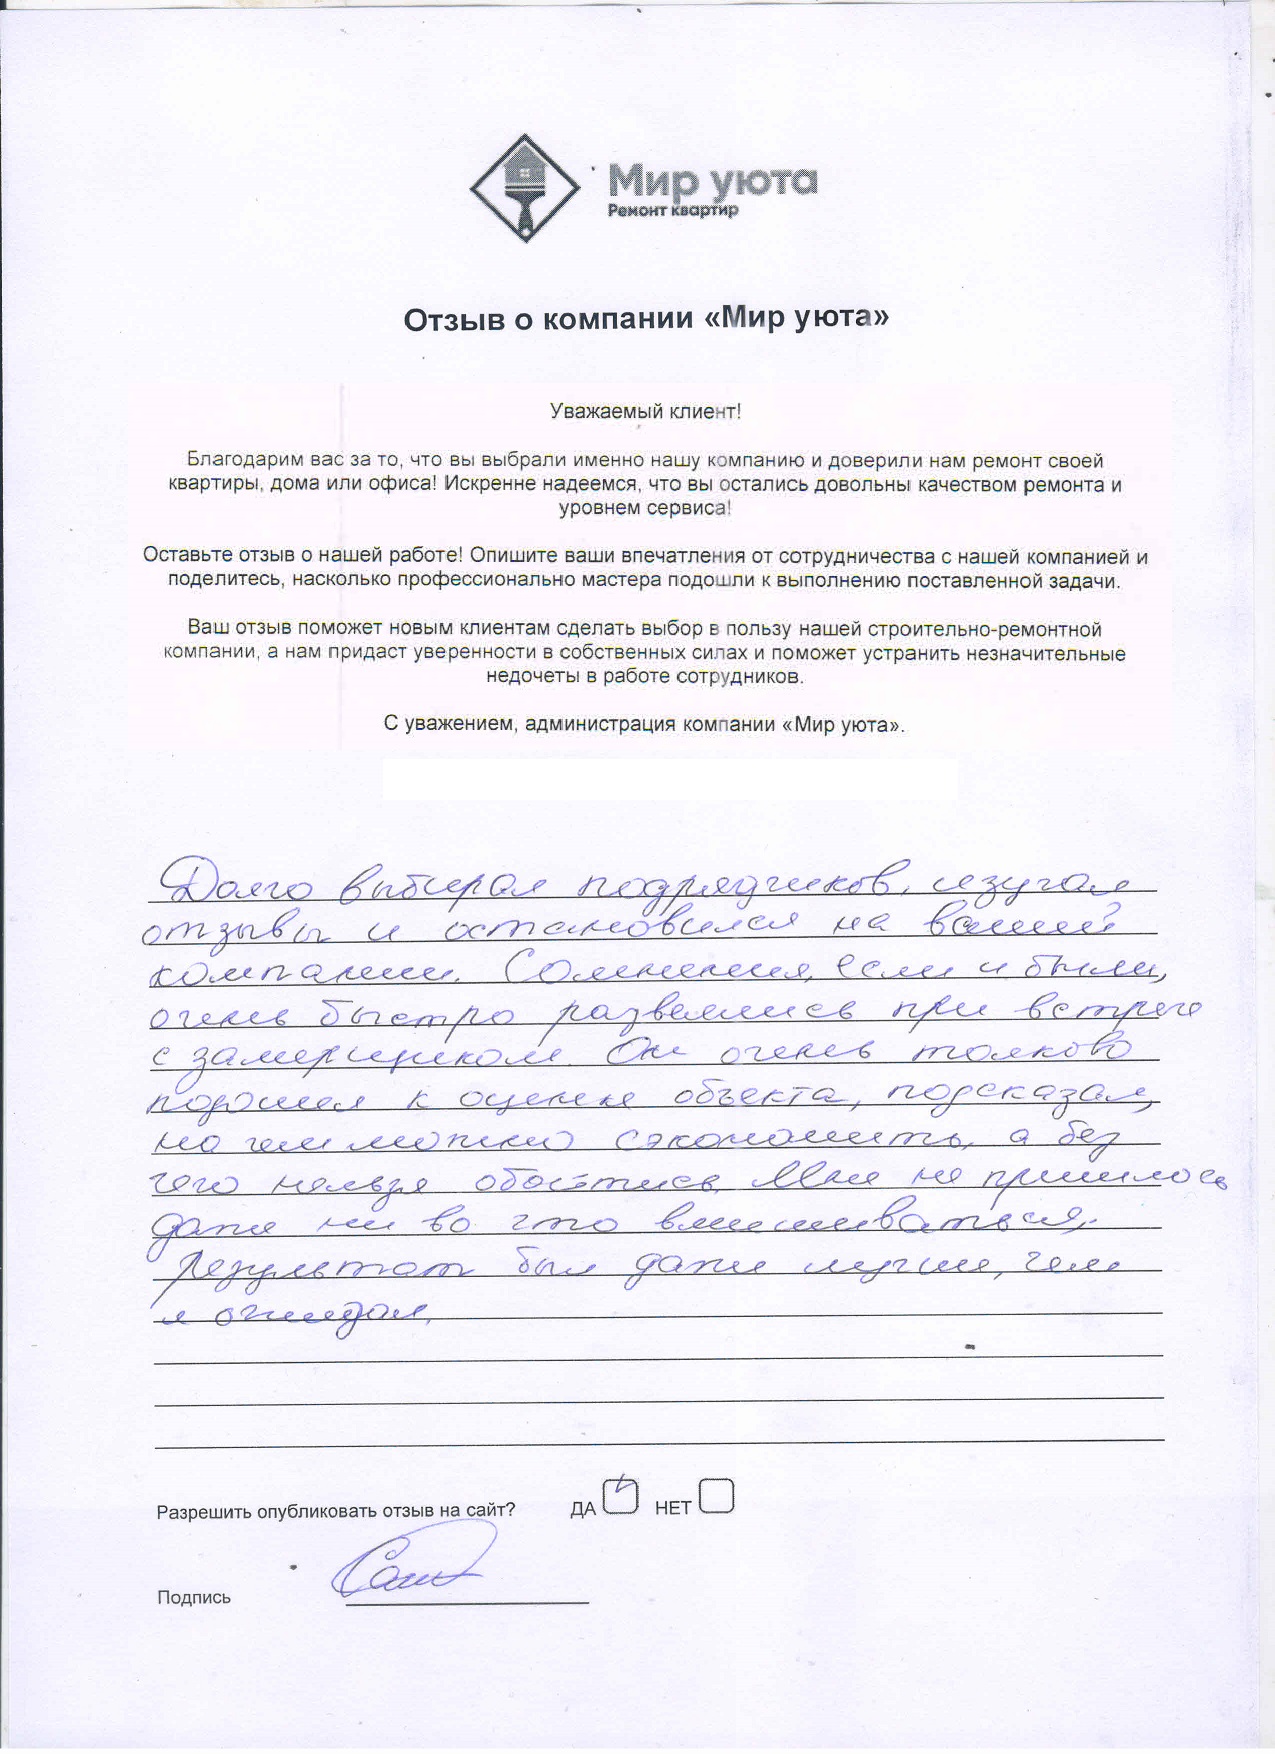 Мир уюта
Ремонт квартир
Отзыв о компании «Мир уюта»
Уважаемый клиент!
Благодарим вас за то, что вы выбрали именно нашу компанию и доверили нам ремонт своей
квартиры, дома или офиса! Искренне надеемся, что вы остались довольны качеством ремонта и
уровнем сервиса!
Оставьте отзыв о нашей работе! Опишите ваши впечатления от сотрудничества с нашей компанией и
поделитесь, насколько профессионально мастера подошли к выполнению поставленной задачи.
Ваш отзыв поможет новым клиентам сделать выбор в пользу нашей строительно-ремонтной
компании, а нам придаст уверенности в собственных силах и поможет устранить незначительные
недочеты в работе сотрудников.
С уважением, администрация компании «Мир уюта».
Долго выбирал подрядчиков, изучал
отзывы и остановился на вашей
компании. Сомнения, если и были,
очень быстро развеялись при встрече
с замерщиком. Он очень толково
подошел к оценке объекта, подсказал,
на чем можно сэкономить, а без
чего нельзя обойтись. Мне не пришлось
даже ни во что вмешиваться,
результат был даже лучше, чем
я ожидал.
Разрешить опубликовать отзыв на сайт? ДА НЕТ
Подпись